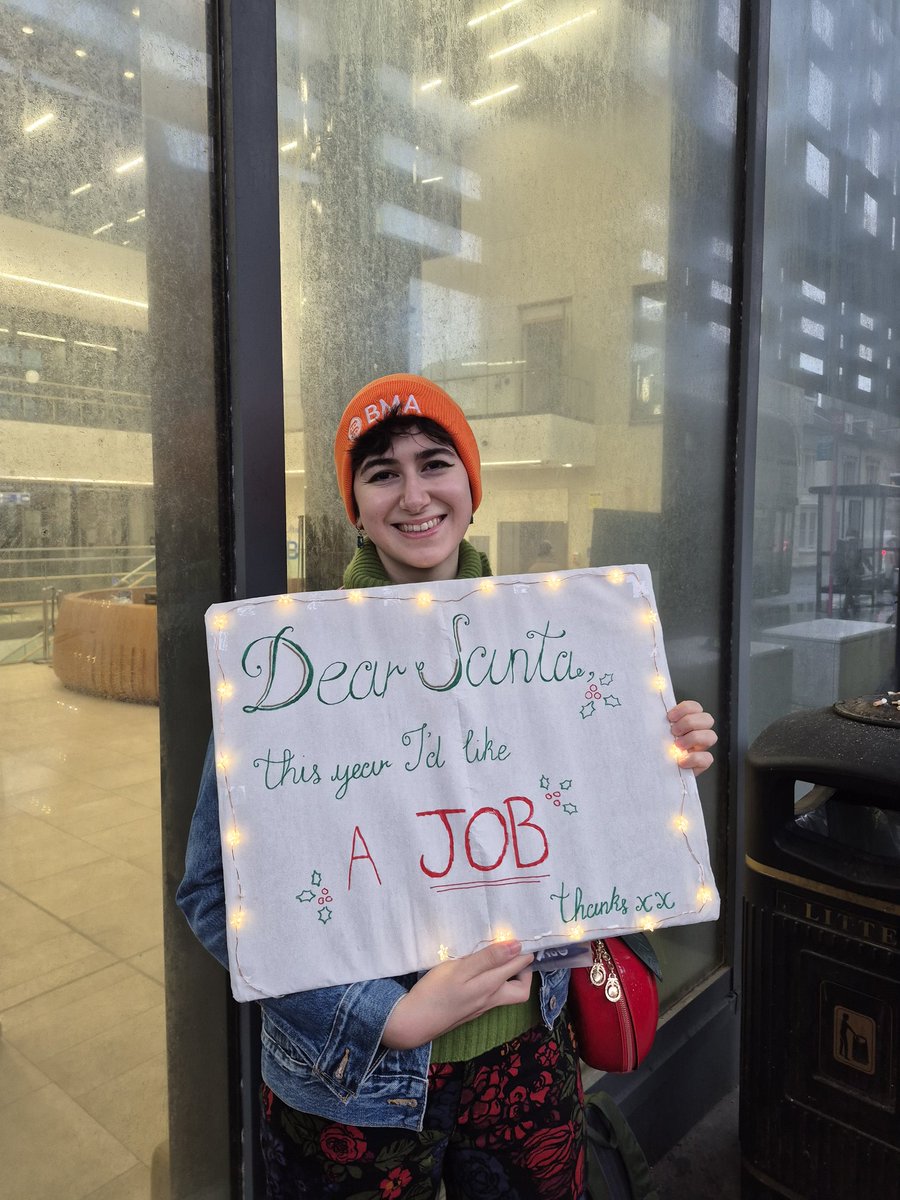 BMA
Dear Santa,
this year I'd like
A JOB
thanks xx